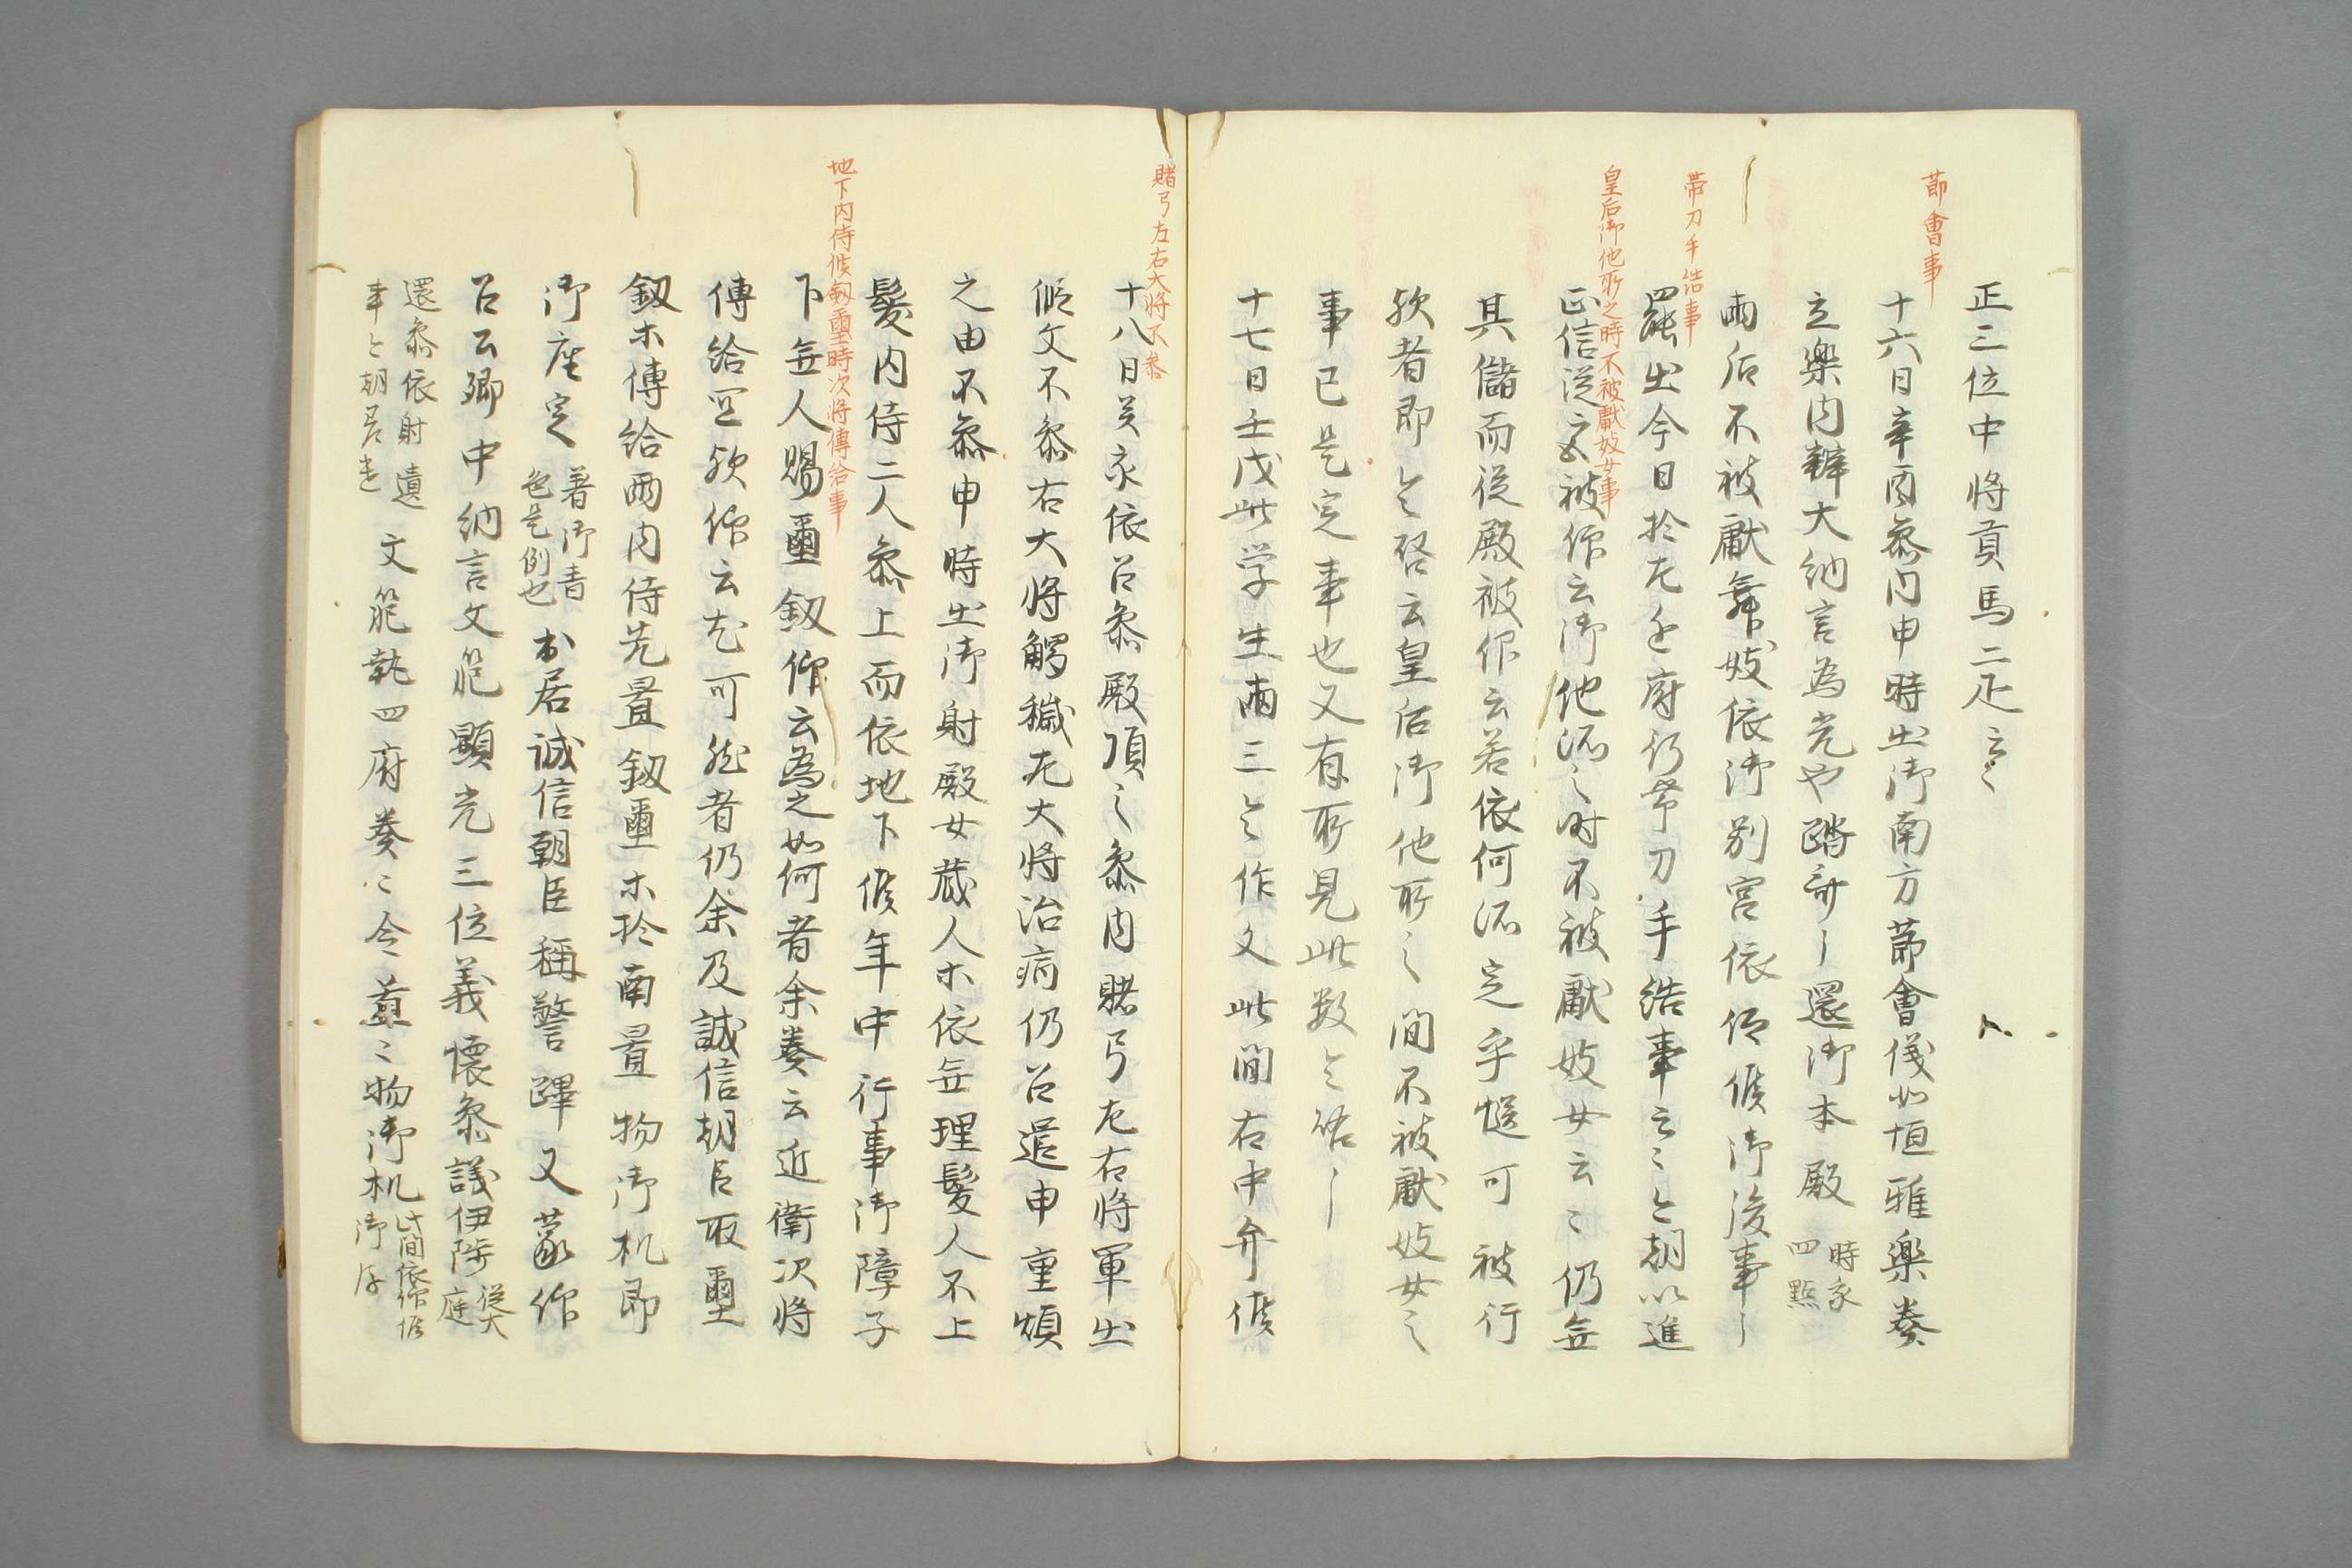 節會事
正三位中将貢馬二疋云々
十六日辛酉参内申時出御南方節會儀如恒雅樂奏
立樂内辨大納言為光也踏歌了還御本殿 時亥四點
両后不被献舞妓依御別宮依仰候御後事了
帯刀手結事
罷出今日於左近府行帯刀手結事云々朝以進
皇后御他所之時不被献妓女事
正信従之又被仰云御他所之時不被献妓女云々仍無
其儲而従殿被仰云若依何所定乎慥可被行
欤者即令啓云皇后御他所之間不被献妓女之
事已是定事也又有所見此数令啓了
十七日壬戌此学生両三令作文此間右中弁候
賭弓左右大将不参
十八日癸亥依召参殿頃之参内賭弓左右将軍出
仮文不参右大将觸穢左大将治病仍召遣申重煩
之由不参申時出御射殿女蔵人木依無理髪人不上
髪内侍二人参上而依地下候年中行事御障子
地下内侍候釼璽時次将傳給事
下無人賜璽釼仰云為之如何者余奏云近衛次将
傳給宜欤仰云尤可然者仍余及誠信朝臣取璽
釼木傳給両内侍先置釼璽木於南置物御机即
御座定 著御青色是例也 出居誠信朝臣稱警蹕又蒙仰
召公卿中納言文範顕光三位義懐参議伊陟 従大庭
還参依射遺 事々朝臣遅 文範執四府奏々令蓋々物御机 此間依仰候御